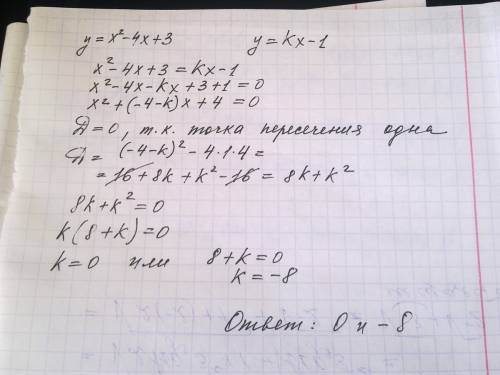 y = x² - 4x + 3   y = kx - 1
x² - 4x + 3 = kx - 1
x² - 4x - kx + 3 + 1 = 0
x² + (-4 - k)x + 4 = 0
D = 0, т.к. точка пересечения одна
D = (-4 - k)² - 4·1·4 =
= 16 + 8k + k² - 16 = 8k + k²
8k + k² = 0
k(8 + k) = 0
k = 0 или 8 + k = 0
k = -8
Ответ: 0 и -8